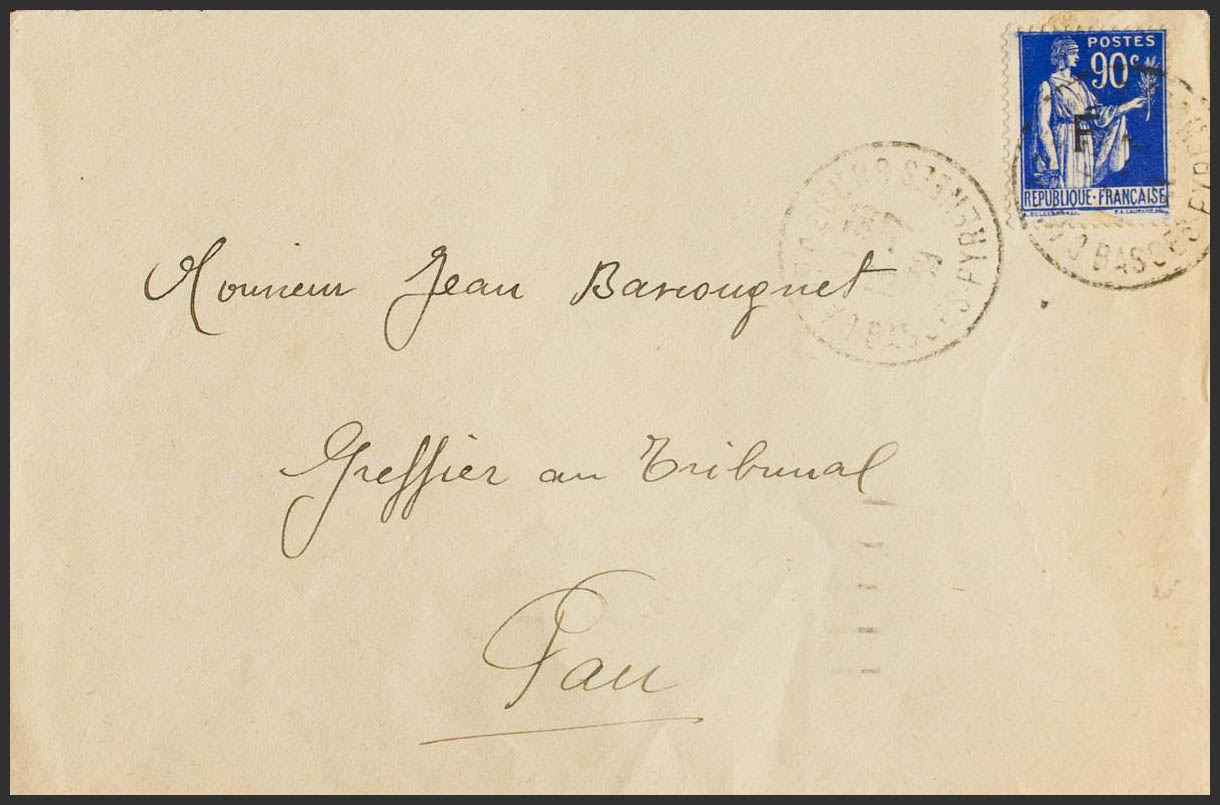 POSTES
90c
F
REPUBLIQUE·FRANÇAISE
BASSES PYRENEES
BASSES PYRENEES
39
Monsieur Jean Barrougnet
Greffier au Tribunal
Pau